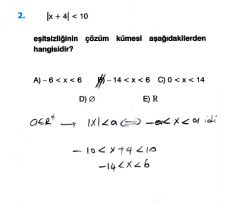 2. |x + 4| < 10
eşitsizliğinin çözüm kümesi aşağıdakilerden
hangisidir?
A) – 6 < x < 6 B) – 14 < x < 6 C) 0 < x < 14
D) ∅ E) ℝ
a∈R⁺ → |x|<a ⟺ -a<x<a idi
-10<x+4<10
-14<x<6